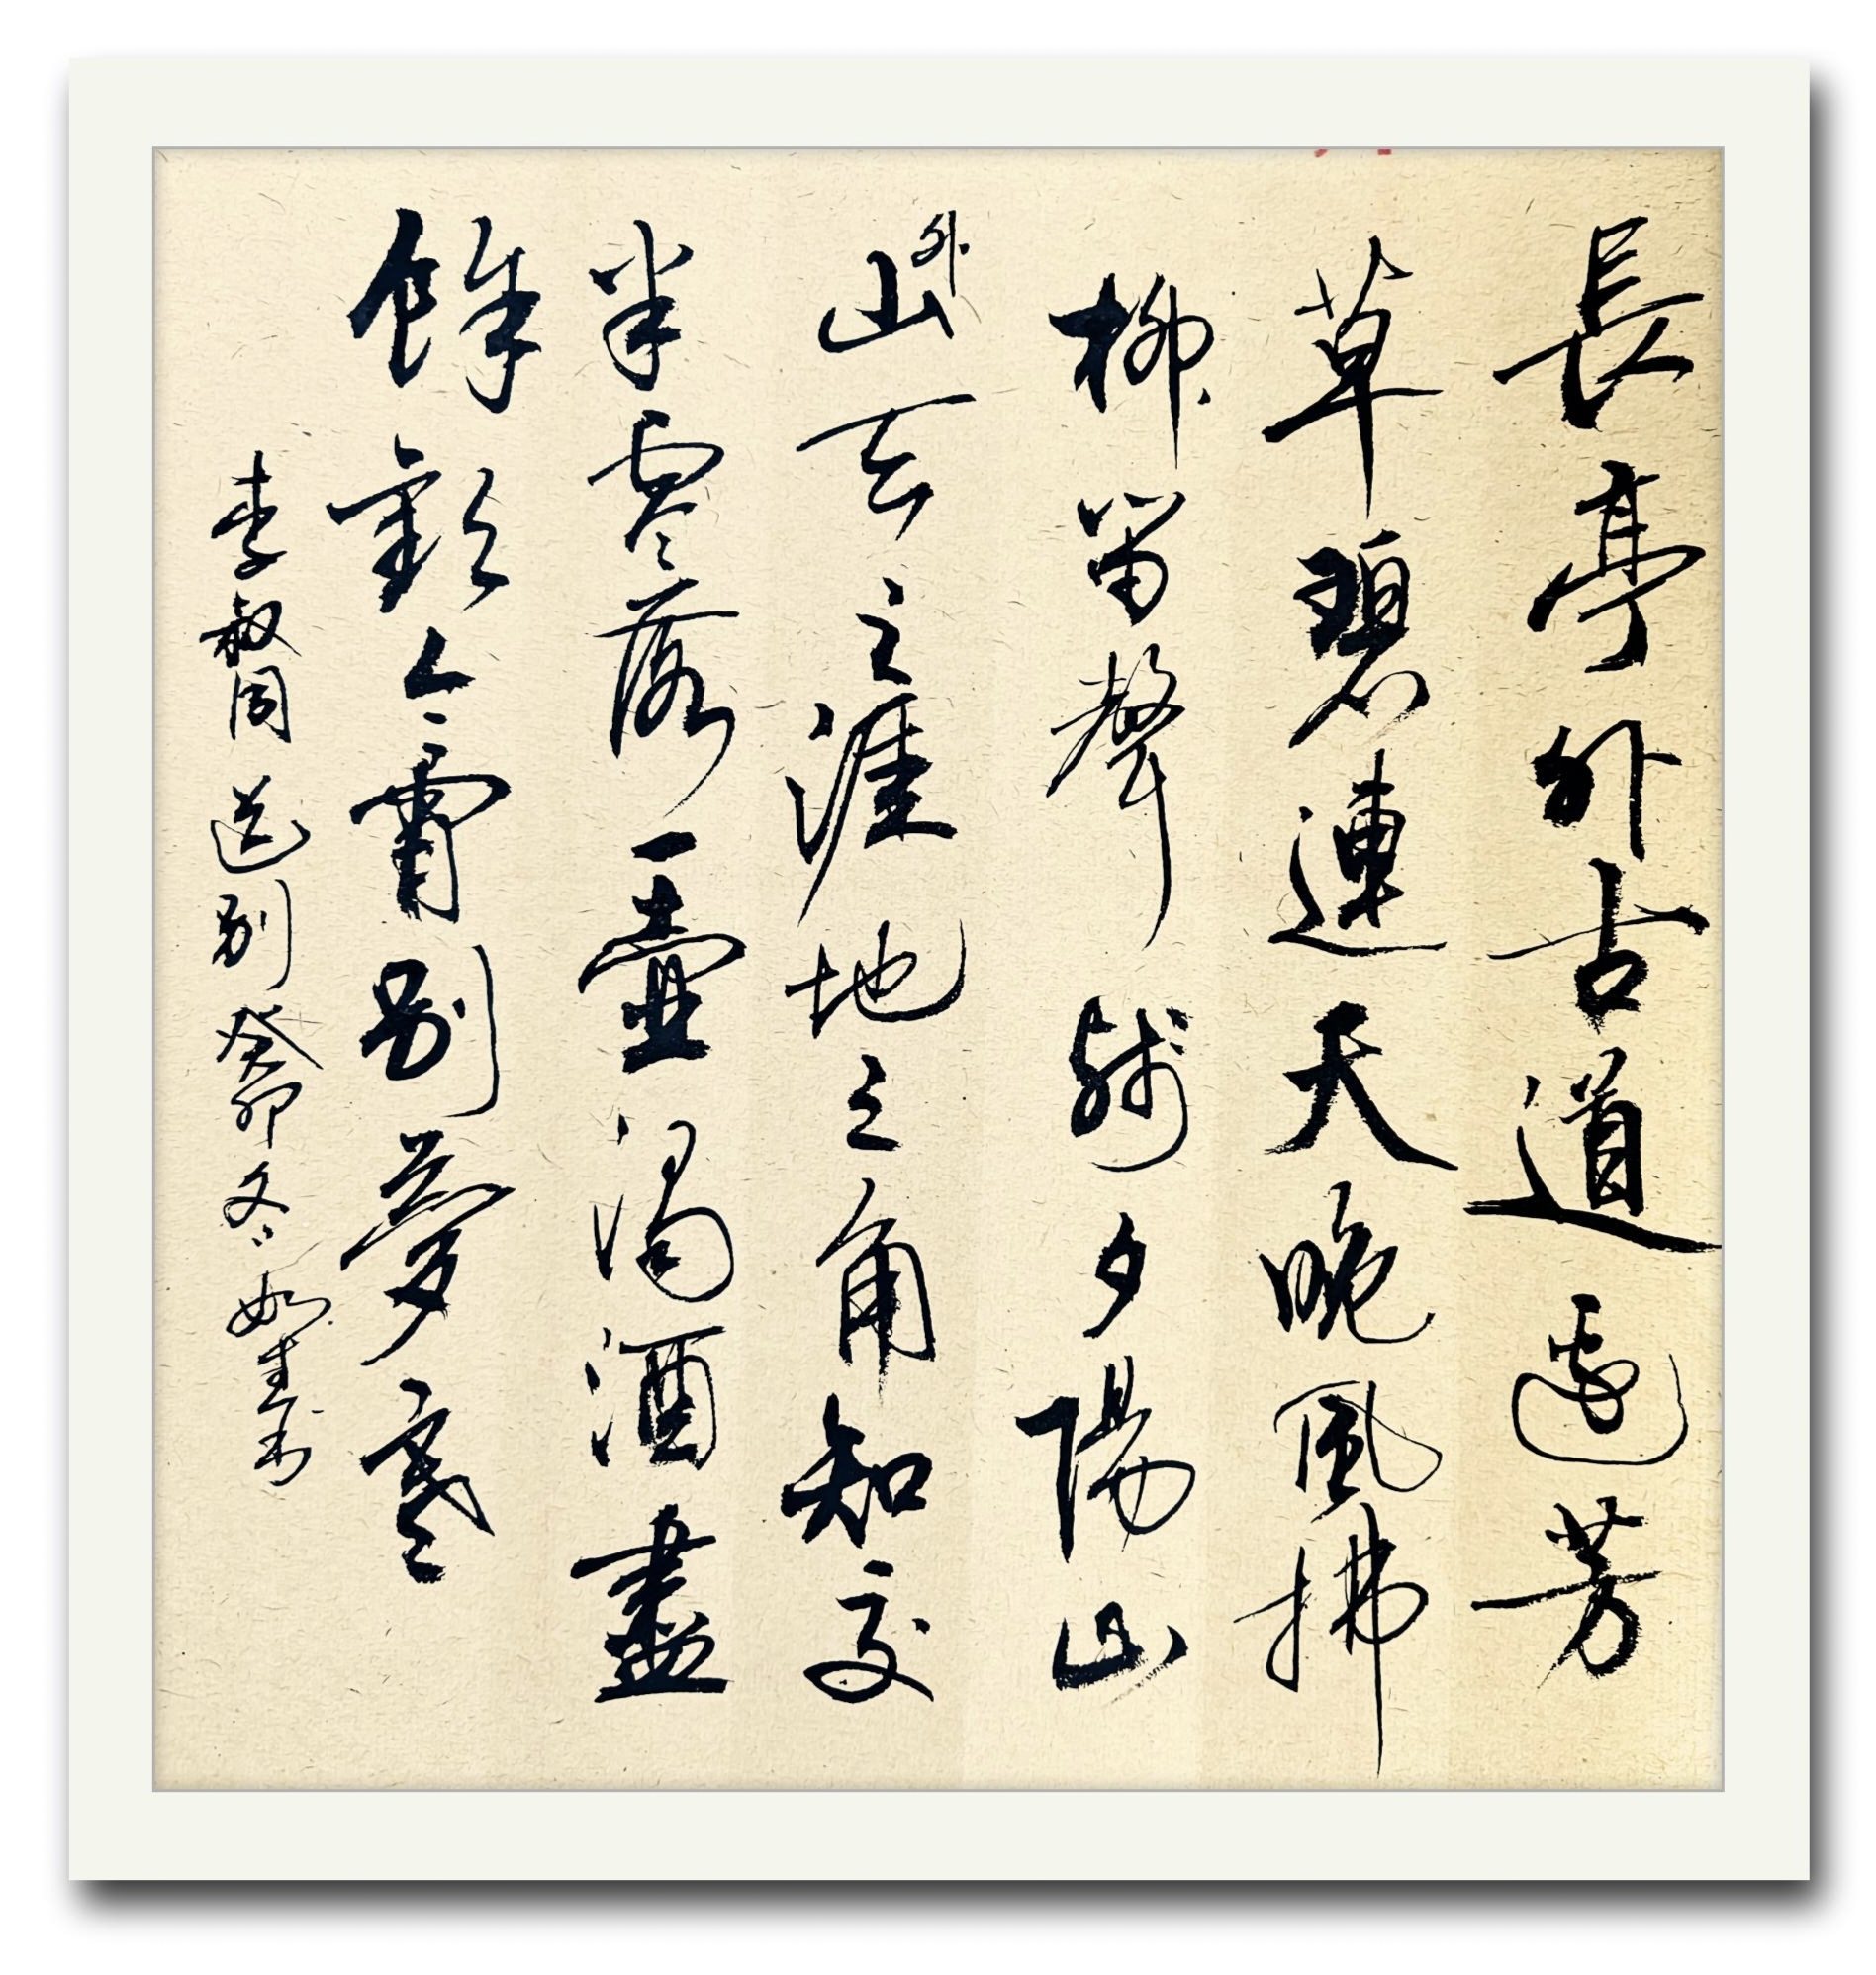 長亭外古道邊芳
草碧連天晚風拂
柳笛聲殘夕陽山
外山天之涯地之角知交
半零落一壺濁酒盡
餘歡今宵別夢寒
李叔同送別癸卯冬如